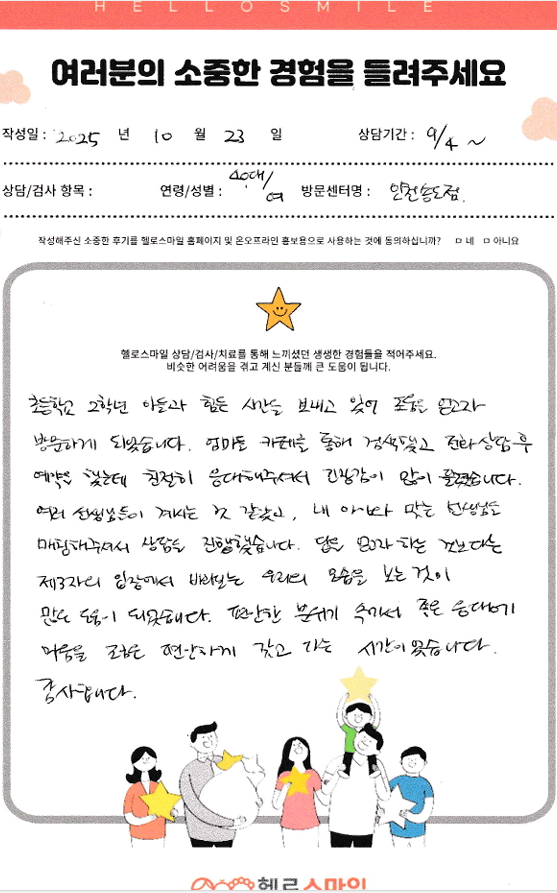 HELLOSMILE
여러분의 소중한 경험을 들려주세요
작성일 : 2025 년 10 월 23 일 상담기간 : 9/4 ~
상담/검사 항목 : 연령/성별 : 40대/여 방문센터명 : 인천송도점.
작성해주신 소중한 후기를 헬로스마일 홈페이지 및 온오프라인 홍보용으로 사용하는 것에 동의하십니까? ㅁ 네 ㅁ 아니요
헬로스마일 상담/검사/치료를 통해 느끼셨던 생생한 경험들을 적어주세요.
비슷한 어려움을 겪고 계신 분들께 큰 도움이 됩니다.
초등학교 2학년 아들과 힘든 시간을 보내고 있어 도움을 얻고자
방문하게 되었습니다. 엄마들 카페를 통해 검색했고 전화상담 후
예약을 했는데 친절히 응대해주셔서 긴장감이 많이 풀렸습니다.
여러 선생님들이 계시는 것 같았고, 내 아이와 맞는 선생님도
매칭해주셔서 상담을 진행했습니다. 답을 얻고자 하는 것보다는
제3자의 입장에서 바라보는 우리의 모습을 보는 것이
많은 도움이 되었습니다. 편안한 분위기 속에서 좋은 응대받기
마음을 조금은 편안하게 갖고 가는 시간이었습니다.
감사합니다.
헬로스마일